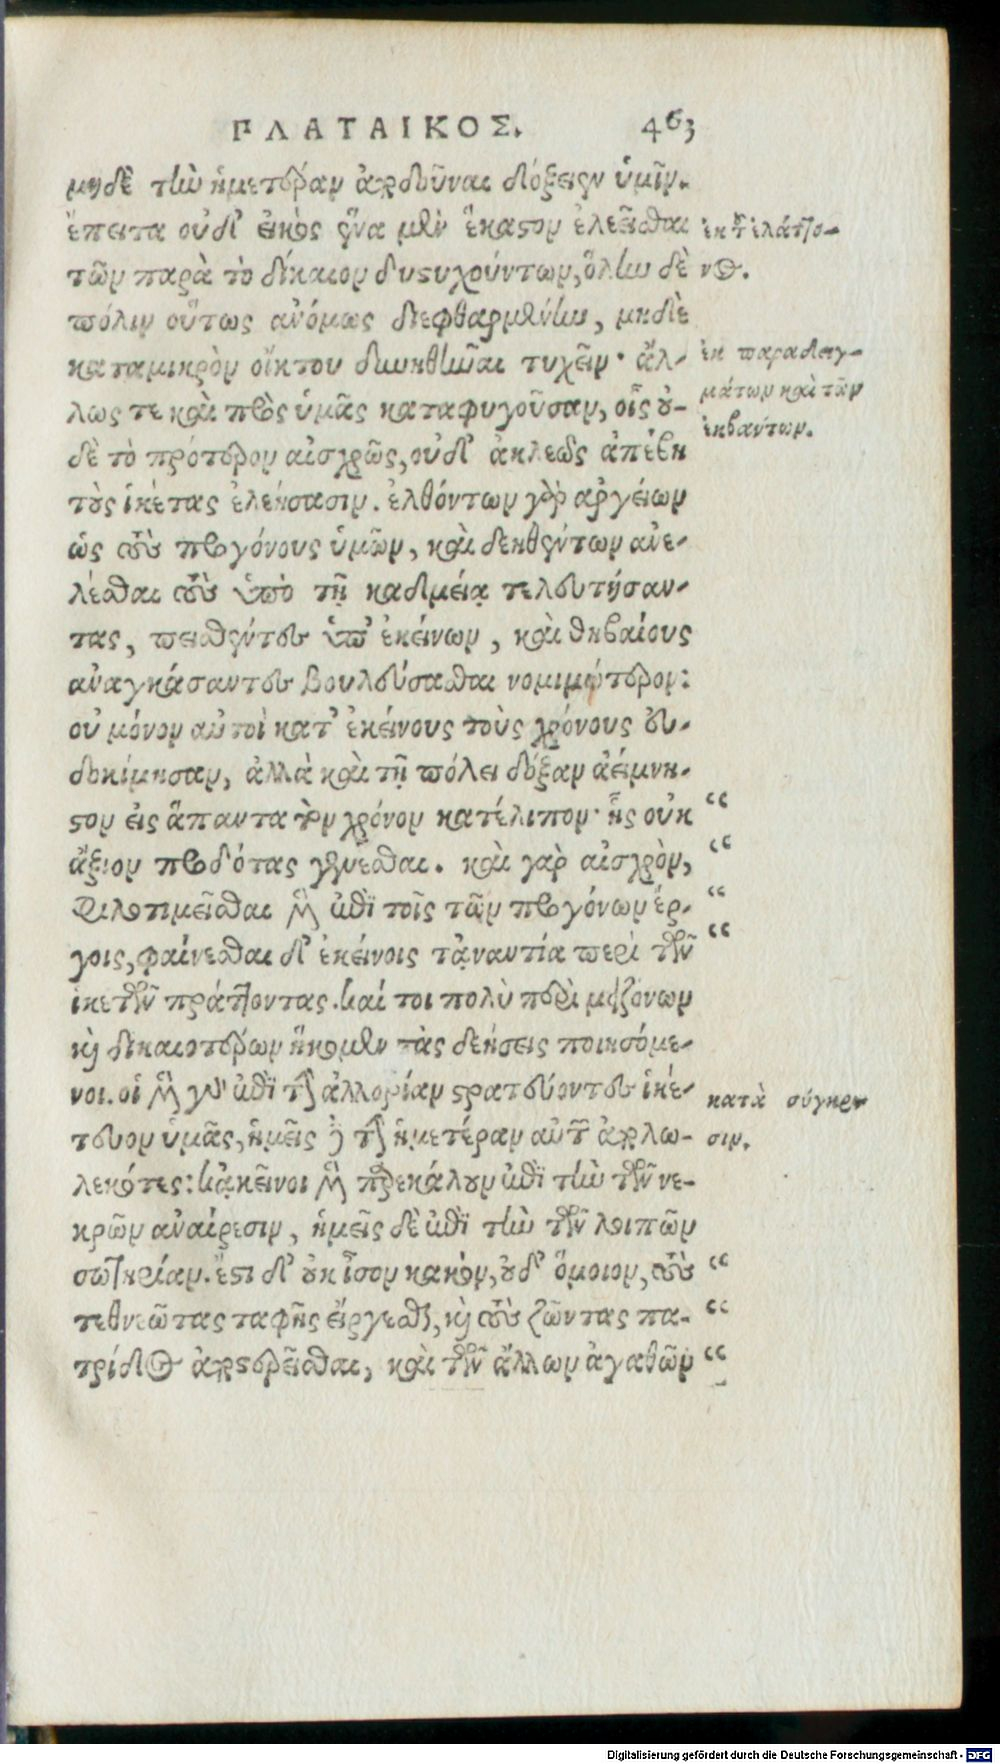 ΠΛΑΤΑΙΚΟΣ. 463
μηδὲ τὴν ἡμετέραν παριδοῦναι δόξειεν ὑμῖν.
ἔπειτα οὐδ' εἰκὸς ἕνα μὲν ἕκαστον ἐλεεῖσθαι
τῶν παρὰ τὸ δίκαιον δυστυχούντων, ὅλην δὲ
πόλιν οὕτως ἀνόμως διεφθαρμένην, μηδὲ
καταμικρὸν οἴκτου δυνηθῆναι τυχεῖν· ἄλ-
λως τε καὶ πρὸς ὑμᾶς καταφυγοῦσαν, οἷς οὐ-
δὲ τὸ πρότερον αἰσχρῶς, οὐδ' ἀκλεῶς ἀπέβη
τοὺς ἱκέτας ἐλεήσασιν. ἐλθόντων γὰρ ἀργείων
ὡς τοὺς προγόνους ὑμῶν, καὶ δεηθέντων ἀνε-
λέσθαι τοὺς ὑπὸ τῇ καδμείᾳ τελευτήσαν-
τας, πεισθέντες ὑπ' ἐκείνων, καὶ θηβαίους
ἀναγκάσαντες βουλεύσασθαι νομιμώτερον:
οὐ μόνον αὐτοὶ κατ' ἐκείνους τοὺς χρόνους εὐ-
δοκίμησαν, ἀλλὰ καὶ τῇ πόλει δόξαν ἀείμνη-
στον εἰς ἅπαντα τὸν χρόνον κατέλιπον· ἧς οὐκ “
ἄξιον προδότας γενέσθαι. καὶ γὰρ αἰσχρὸν, “
φιλοτιμεῖσθαι μὲν ἐπὶ τοῖς τῶν προγόνων ἔρ- “
γοις, φαίνεσθαι δ' ἐκείνοις τἀναντία περὶ τῶν “
ἱκετῶν πράττοντας. καί τοι πολὺ περὶ μειζόνων
καὶ δικαιοτέρων ἥκομεν τὰς δεήσεις ποιησόμε-
νοι. οἱ μὲν γὰρ ἐπὶ τὴν ἀλλοτρίαν στρατεύοντες ἱκέ-
τευον ὑμᾶς, ἡμεῖς δὲ τὴν ἡμετέραν αὐτῶν ἀπολω-
λεκότες: κἀκεῖνοι μὲν παρεκάλουν ἐπὶ τὴν τῶν νε-
κρῶν ἀναίρεσιν, ἡμεῖς δὲ ἐπὶ τὴν τῶν λοιπῶν
σωτηρίαν. ἔστι δ' οὐκ ἶσον κακὸν, οὐδ' ὅμοιον, τοὺς “
τεθνεῶτας ταφῆς εἴργεσθαι, καὶ τοὺς ζῶντας πα- “
τρίδος ἀποστερεῖσθαι, καὶ τῶν ἄλλων ἀγαθῶν “
ἐκ τοῦ ἐλάττο-
νος.
ἐκ παραδειγ-
μάτων καὶ τῶν
ἐκβαντων.
κατὰ σύγκρι-
σιν.
Digitalisierung gefördert durch die Deutsche Forschungsgemeinschaft - DFG